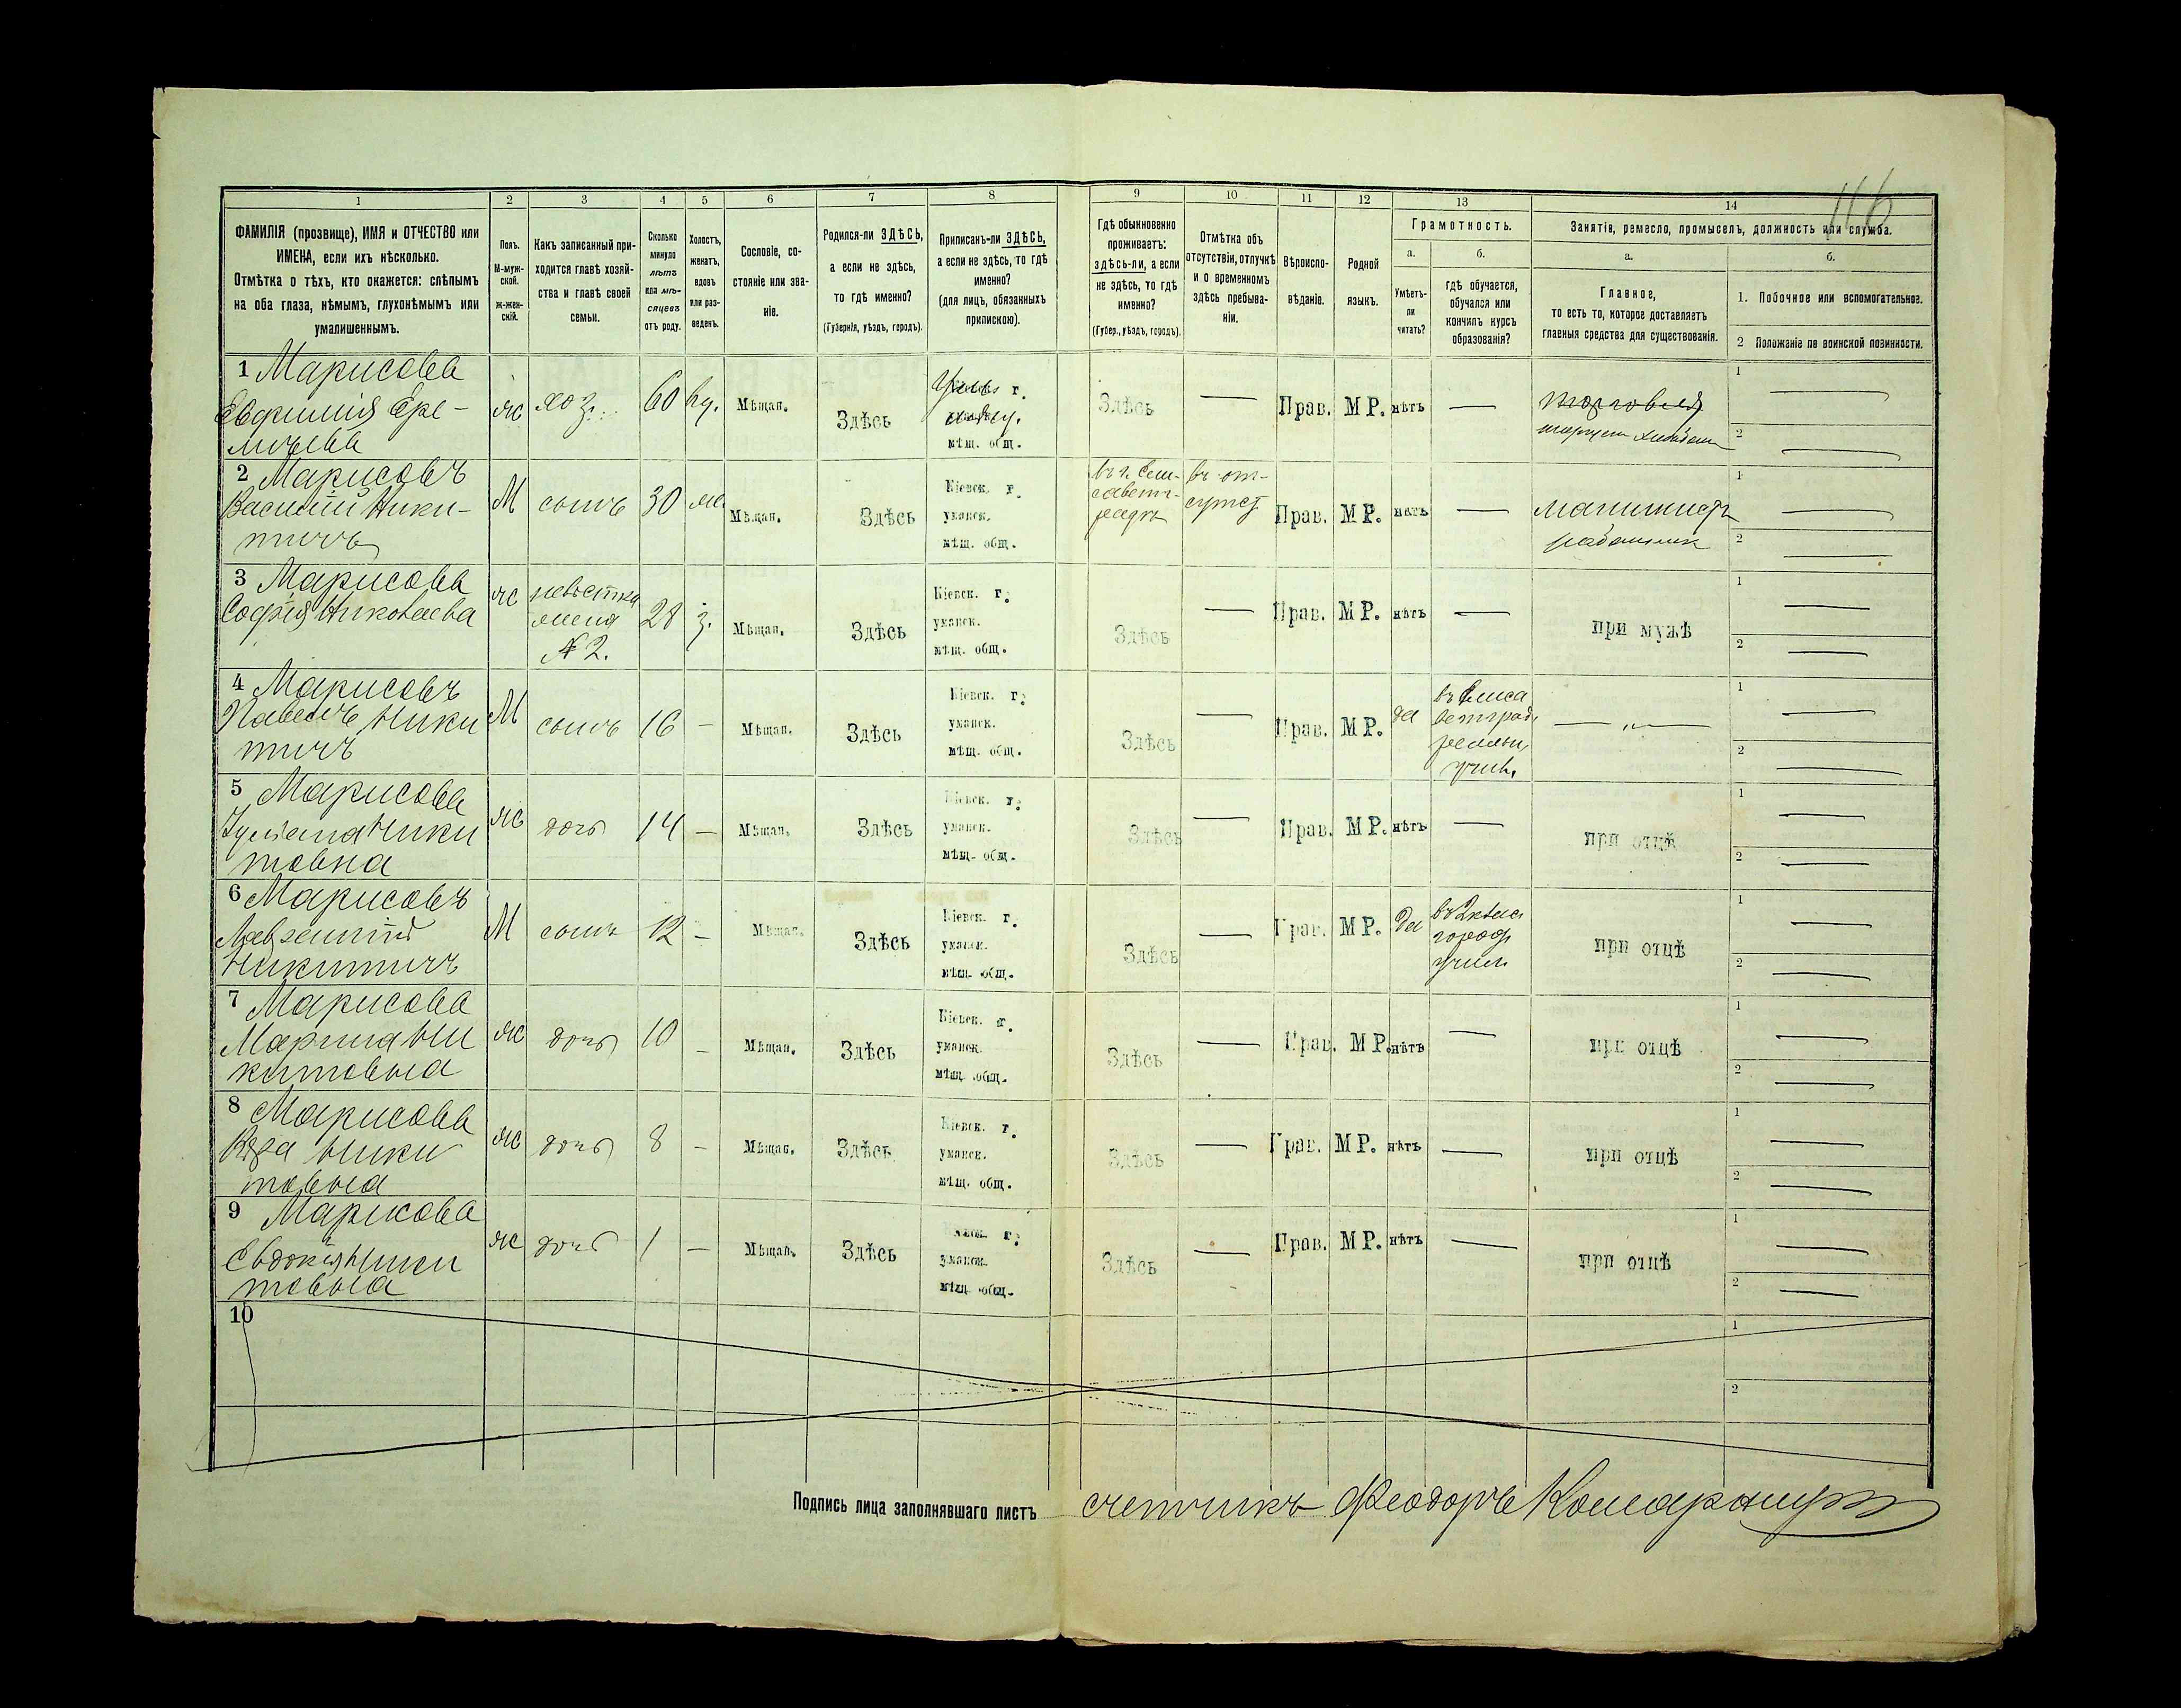 116
1
2
3
4
5
6
7
8
9
10
11
12
13
14
ФАМИЛІЯ (прозвище), ИМЯ и ОТЧЕСТВО или
ИМЕНА, если ихъ нѣсколько.
Отмѣтка о тѣхъ, кто окажется: слѣпымъ
на оба глаза, нѣмымъ, глухонѣмымъ или
умалишеннымъ.
Полъ.
М-муж-
ской.
ж-жен-
скій.
Какъ записанный при-
ходится главѣ хозяй-
ства и главѣ своей
семьи.
Сколько
минуло
лѣтъ
или мѣ-
сяцевъ
отъ роду.
Холостъ,
женатъ,
вдовъ
или раз-
веденъ.
Сословіе, со-
стояніе или зва-
ніе.
Родился-ли ЗДѢСЬ,
а если не здѣсь,
то гдѣ именно?
(Губернія, уѣздъ, городъ).
Приписанъ-ли ЗДѢСЬ,
а если не здѣсь, то гдѣ
именно?
(для лицъ, обязанныхъ
припискою).
Гдѣ обыкновенно
проживаетъ:
здѣсь-ли, а если
не здѣсь, то гдѣ
именно?
(Губер., уѣздъ, городъ).
Отмѣтка объ
отсутствіи, отлучкѣ
и о временномъ
здѣсь пребыва-
ніи.
Вѣроиспо-
вѣданіе.
Родной
языкъ.
Грамотность.
а.
Умѣетъ-
ли
читать?
б.
гдѣ обучается,
обучался или
кончилъ курсъ
образованія?
Занятія, ремесло, промыселъ, должность или служба.
а.
Главное,
то есть то, которое доставляетъ
главныя средства для существованія.
б.
1. Побочное или вспомогательное.
2 Положеніе по воинской повинности.
1 Марисова
Евфимія Ере-
миева
ж хоз. 60 вд. Мѣщан. Здѣсь
г.
мѣщ. общ.
Здѣсь — Прав. М Р. нѣтъ —
торговля
1 —
2 —
2 Марисовъ
Василій Ники-
тичъ
М сынъ 30 ж. Мѣщан. Здѣсь
Кіевск. г.
уманск.
мѣщ. общ.
въ г. Ели-
савет-
градѣ
въ от-
сутст.
Прав. М Р. нѣтъ —
машинистъ
работник
1 —
2 —
3 Марисова
Софія Николаева
ж
невѣстка
жена
№ 2.
28 з. Мѣщан. Здѣсь
Кіевск. г.
уманск.
мѣщ. общ.
Здѣсь — Прав. М Р. нѣтъ — при мужѣ
1 —
2 —
4 Марисовъ
Павелъ Ники
тичъ
М сынъ 16 – Мѣщан. Здѣсь
Кіевск. г.
уманск.
мѣщ. общ.
Здѣсь — Прав. М Р. да
въ Елиса
ветград.
реальн.
учил.
— „ —
1 —
2 —
5 Марисова
Ники
товна
ж дочь 14 – Мѣщан. Здѣсь
Кіевск. г.
уманск.
мѣщ. общ.
Здѣсь — Прав. М Р. нѣтъ — при отцѣ
1 —
2 —
6 Марисовъ
Лаврентій
Никитичъ
М сынъ 12 – Мѣщан. Здѣсь
Кіевск. г.
уманск.
мѣщ. общ.
Здѣсь — Прав. М Р. да
въ 2 клас
город
учил
при отцѣ
1 —
2 —
7 Марисова
Марина Ни
китовна
ж дочь 10 – Мѣщан. Здѣсь
Кіевск. г.
уманск.
мѣщ. общ.
Здѣсь — Прав. М Р. нѣтъ — при отцѣ
1 —
2 —
8 Марисова
Вѣра Ники
товна
ж дочь 8 – Мѣщан. Здѣсь
Кіевск. г.
уманск.
мѣщ. общ.
Здѣсь — Прав. М Р. нѣтъ — при отцѣ
1 —
2 —
9 Марисова
Евдокія Ники
товна
ж дочь 1 – Мѣщан. Здѣсь
Кіевск. г.
уманск.
мѣщ. общ.
Здѣсь — Прав. М Р. нѣтъ — при отцѣ
1 —
2 —
10
1
2
Подпись лица заполнявшаго листъ счетчикъ Феодоръ